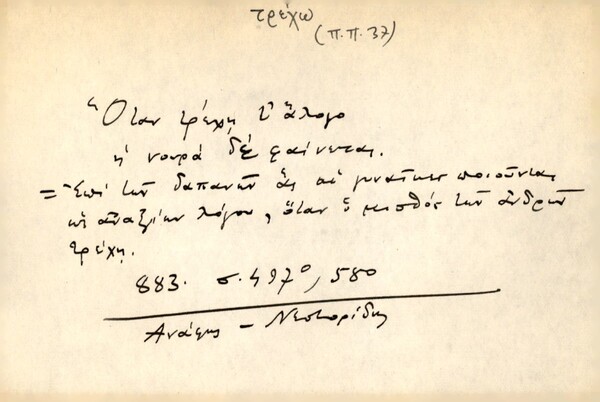 τρέχω
(π.π. 37)
Ὅταν τρέχῃ τ' ἄλογο
ἡ νουρά δὲ φαίνεται.
= Ἐπὶ τῶν δαπανῶν ἃς αἱ γυναῖκες ποιοῦνται
ὡς ἀναξίων λόγου, ὅταν ὁ μισθός τῶν ἀνδρῶν
τρέχῃ.
883. σ. 497º, 580
Ανάφης – Νεστορίδης